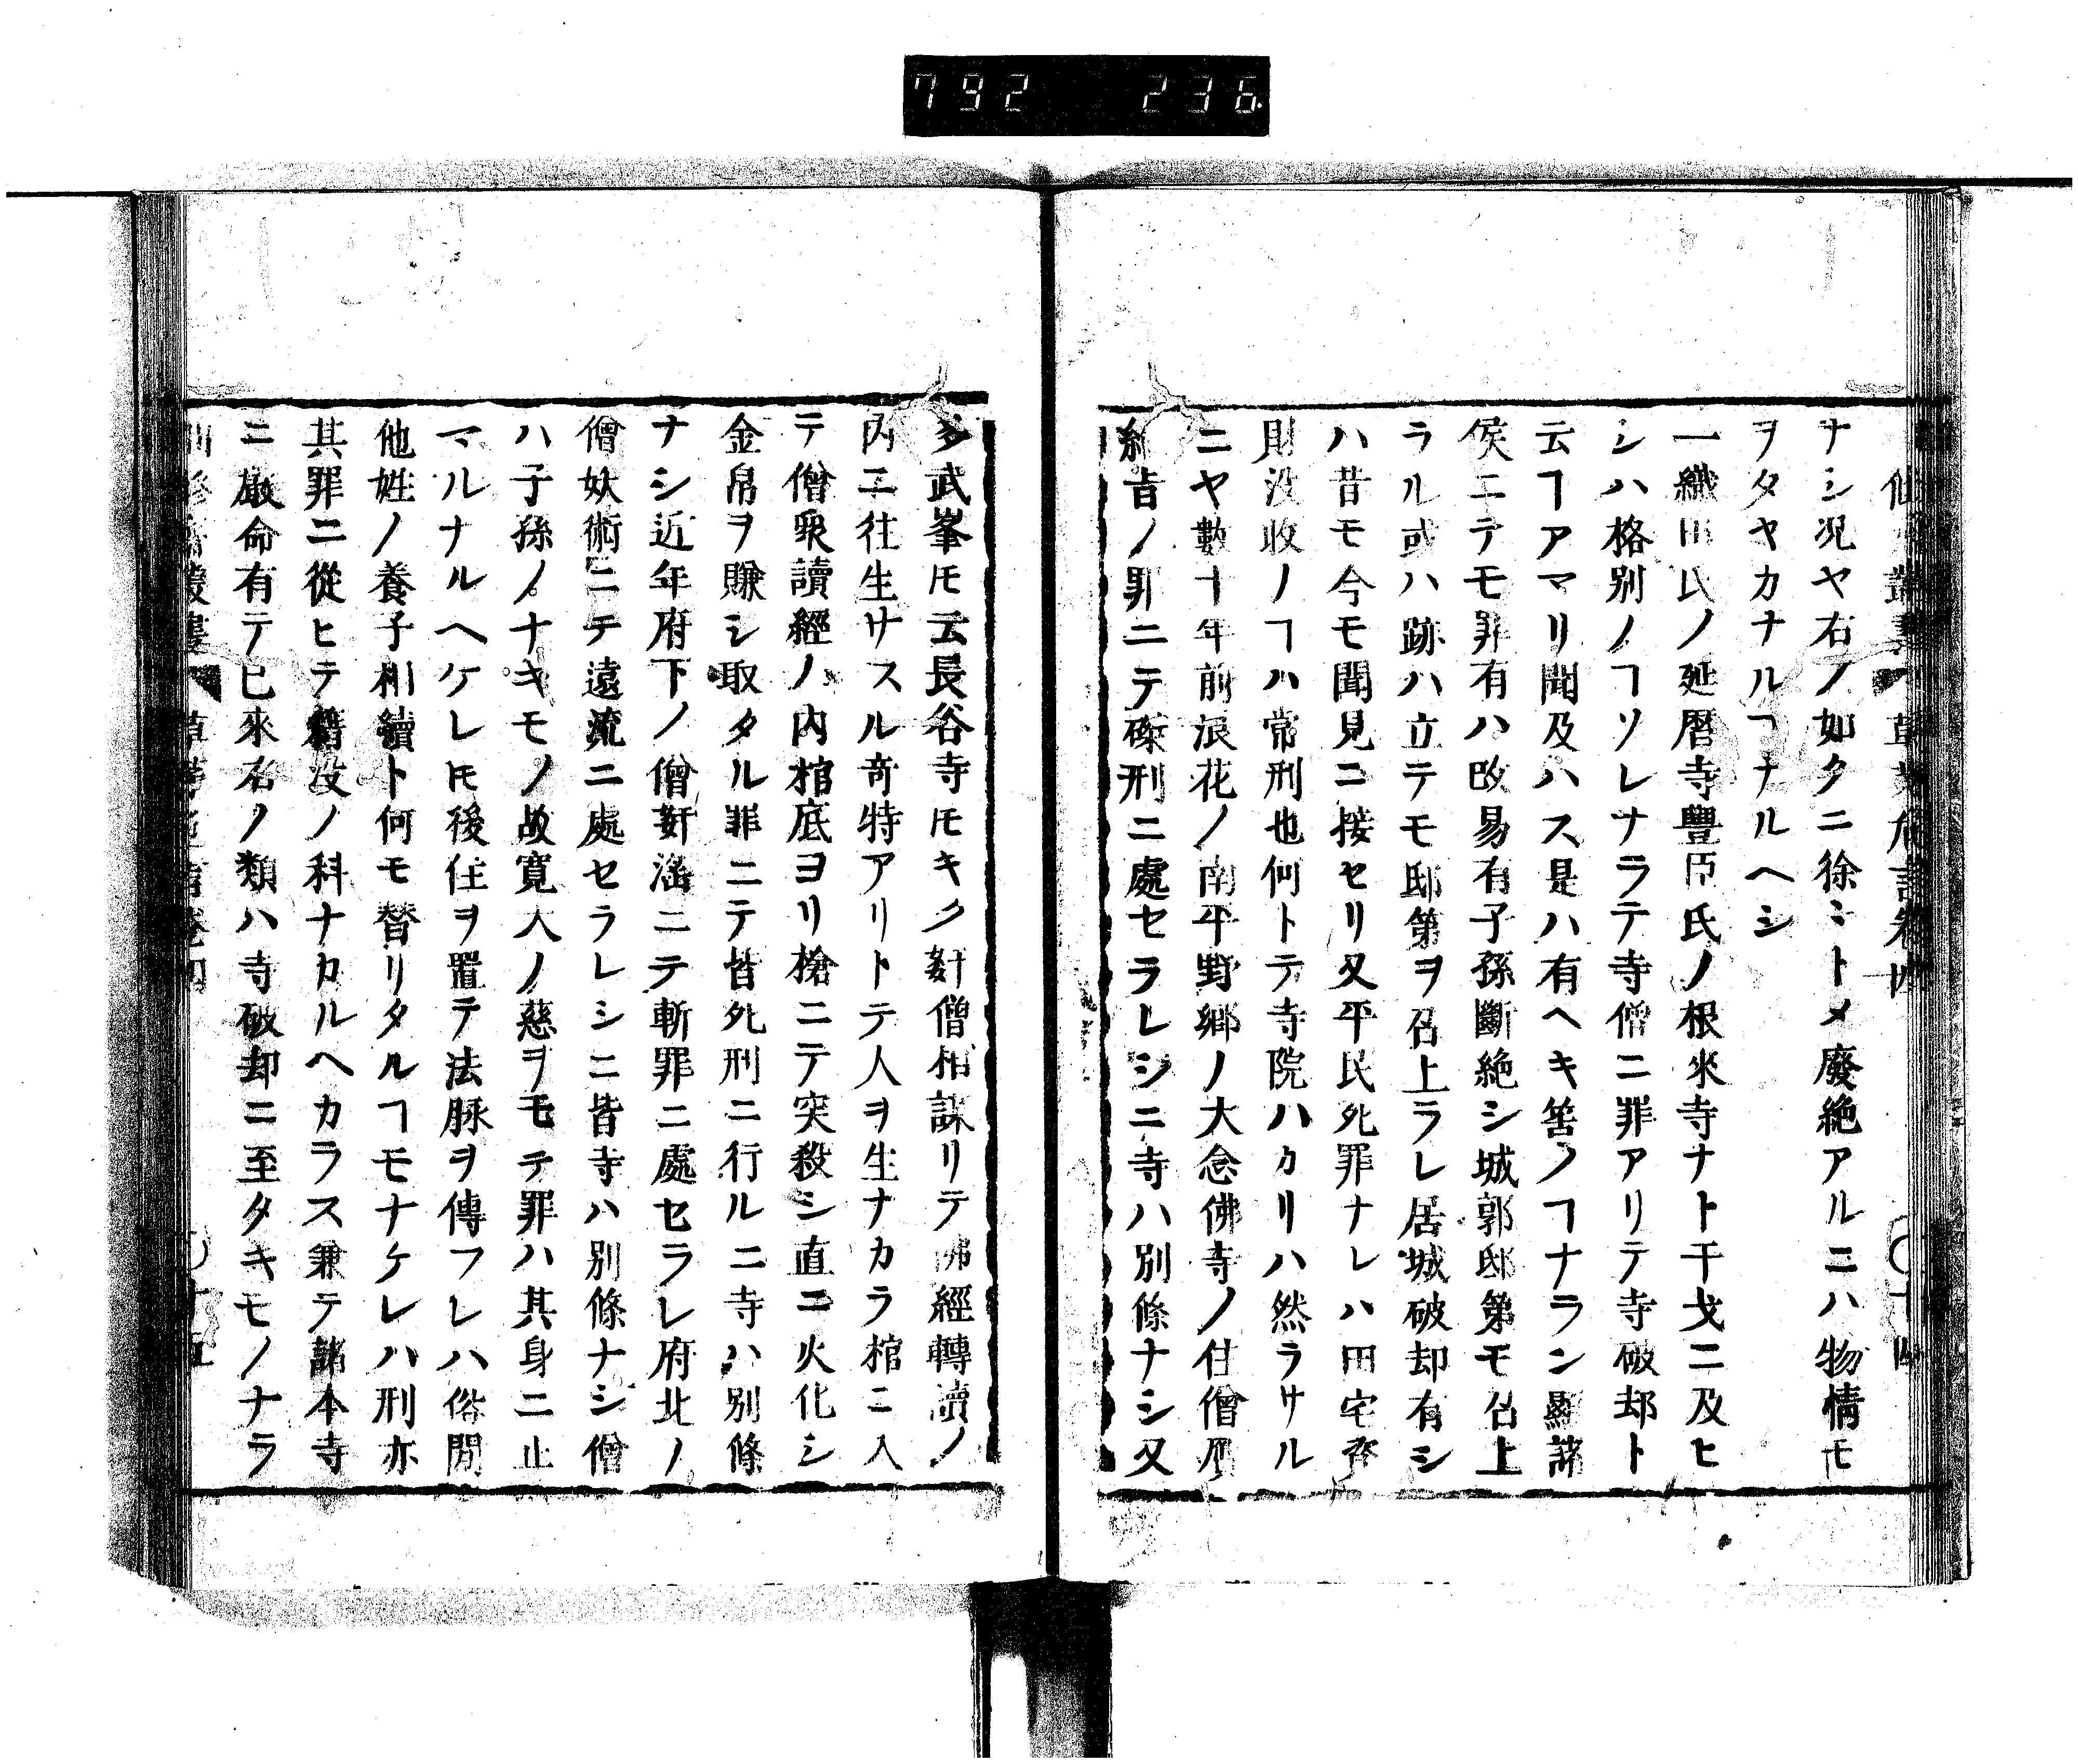 792 236
ナシ况ヤ右ノ如クニ徐ミトメ廢絶アルニハ物情モ
ヲタヤカナルヿナルヘシ
一織田氏ノ延曆寺豐臣氏ノ根來寺ナト干戈ニ及ヒ
シハ格別ノヿソレナラテ寺僧ニ罪アリテ寺破却ト
云ヿアマリ聞及ハス是ハ有ヘキ筈ノヿナラン顯諸
侯ニテモ罪有ハ改易有子孫斷絶シ城郭邸第モ召上
ラル或ハ跡ハ立テモ邸第ヲ召上ラレ居城破却有シ
ハ昔モ今モ聞見ニ接セリ又平民死罪ナレハ田宅資
財没收ノヿハ常刑也何トテ寺院ハカリハ然ラサル
ニヤ數十年前浪花ノ南平野郷ノ大念佛寺ノ住僧贋
綸旨ノ罪ニテ磔刑ニ處セラレシニ寺ハ別條ナシ又
多武峯𪜈云長谷寺𪜈キク姧僧相謀リテ佛經轉讀ノ
内ニ往生サスル奇特アリトテ人ヲ生ナカラ棺ニ入
テ僧衆讀經ノ内棺底ヨリ槍ニテ突殺シ直ニ火化シ
金帛ヲ賺シ取タル罪ニテ皆死刑ニ行ルニ寺ハ別條
ナシ近年府下ノ僧姧滛ニテ斬罪ニ處セラレ府北ノ
僧妖術ニテ遠流ニ處セラレシニ皆寺ハ別條ナシ僧
ハ子孫ノナキモノ故寛大ノ慈ヲモテ罪ハ其身ニ止
マルナルヘケレ𪜈後住ヲ置テ法脉ヲ傳フレハ俗間
他姓ノ養子相續ト何モ替リタルヿモナケレハ刑亦
其罪ニ從ヒテ籍没ノ科ナカルヘカラス兼テ諸本寺
ニ嚴命有テ已來右ノ類ハ寺破却ニ至タキモノナラ